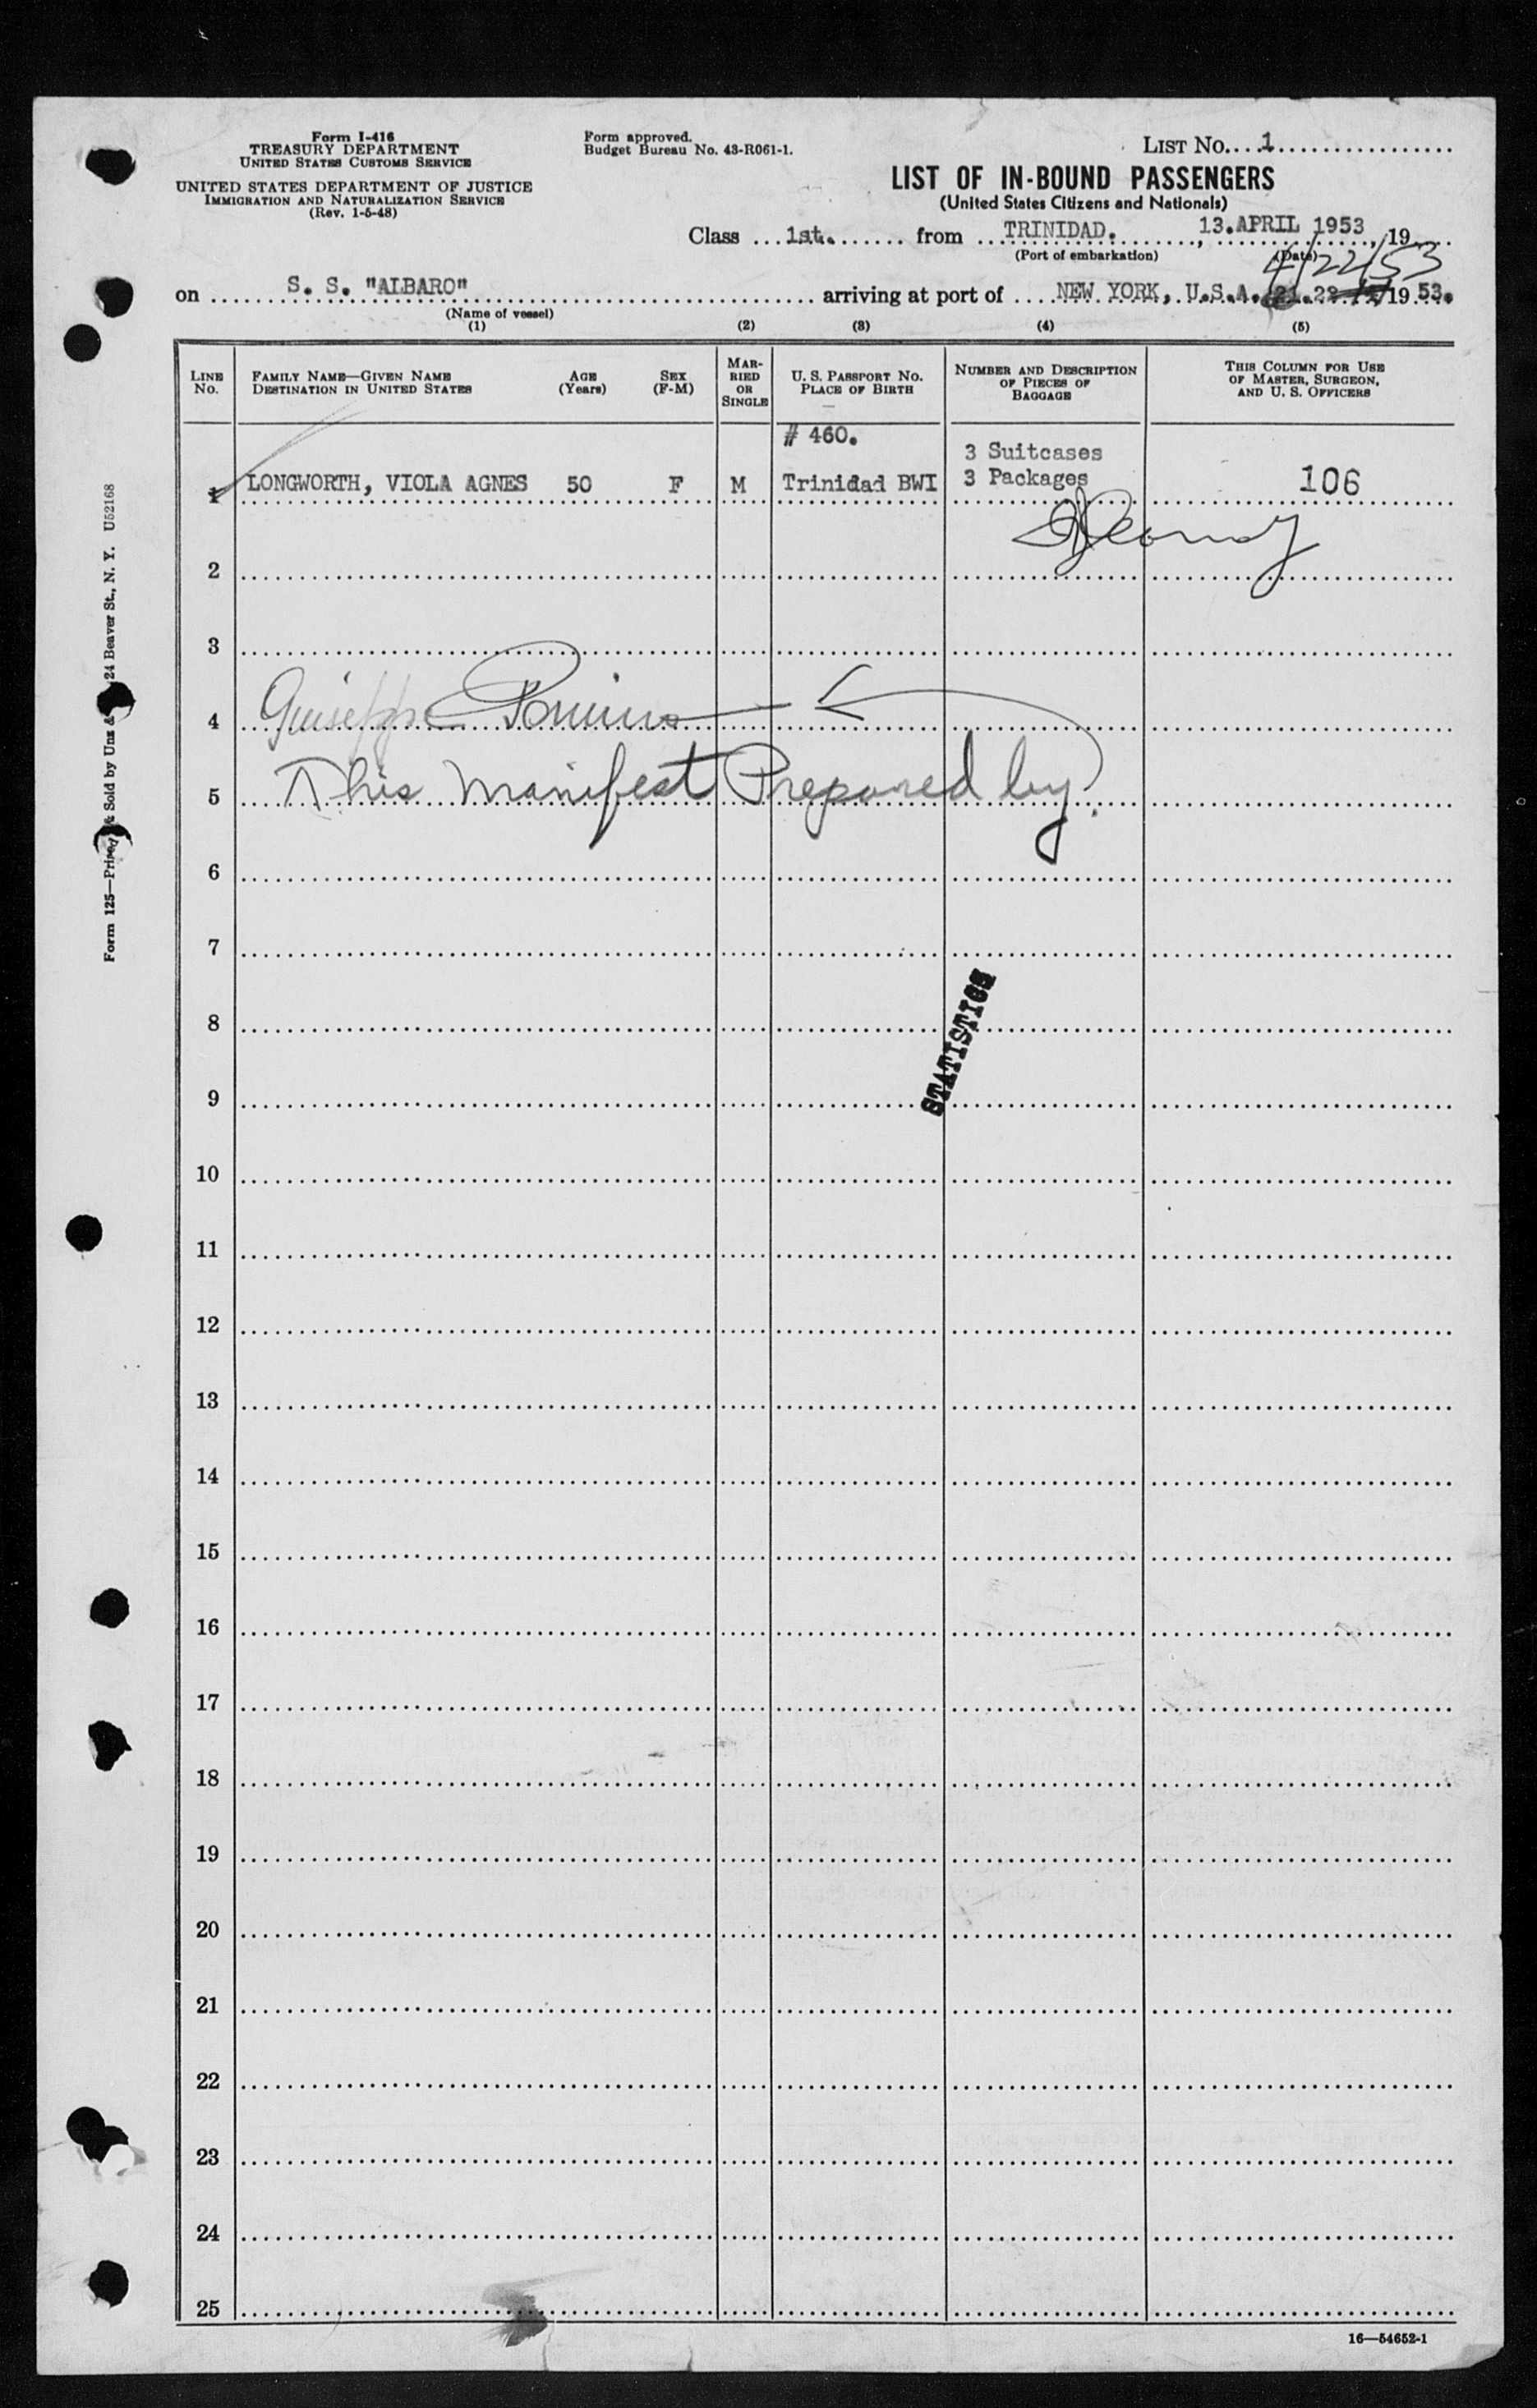 Form I-416
TREASURY DEPARTMENT
UNITED STATES CUSTOMS SERVICE
UNITED STATES DEPARTMENT OF JUSTICE
IMMIGRATION AND NATURALIZATION SERVICE
(Rev. 1-5-48)
Form approved.
Budget Bureau No. 43-R061-1.
LIST No. 1
LIST OF IN-BOUND PASSENGERS
(United States Citizens and Nationals)
Class 1st. from TRINIDAD. , 13.APRIL 1953 , 19
(Port of embarkation) (Date)
4/22/53
on S. S. "ALBARO" arriving at port of NEW YORK, U.S.A. 21.22 19 53.
(Name of vessel)
(1) (2) (3) (4) (5)
LINE No. FAMILY NAME—GIVEN NAME DESTINATION IN UNITED STATES AGE (Years) SEX (F-M) MARRIED OR SINGLE U. S. PASSPORT NO. PLACE OF BIRTH NUMBER AND DESCRIPTION OF PIECES OF BAGGAGE THIS COLUMN FOR USE OF MASTER, SURGEON, AND U. S. OFFICERS
# 460.
3 Suitcases
1 LONGWORTH, VIOLA AGNES 50 F M Trinidad BWI 3 Packages 106
2
3
4 Guiseppe
5 This Manifest Prepared by
6
7
8
STATISTICS
9
10
11
12
13
14
15
16
17
18
19
20
21
22
23
24
25
16—54652-1
Form 125—Printed & Sold by Unz & 24 Beaver St., N. Y. U52168